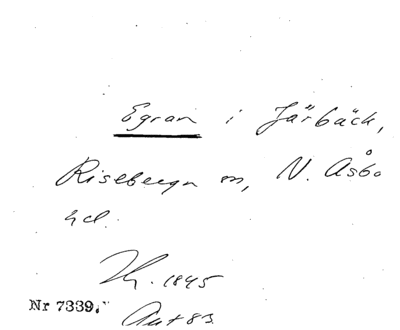 Egran i Järbäck,
Riseberga sn, N. Åsbo
hd.
1845
Nr 7339.
Ant 83